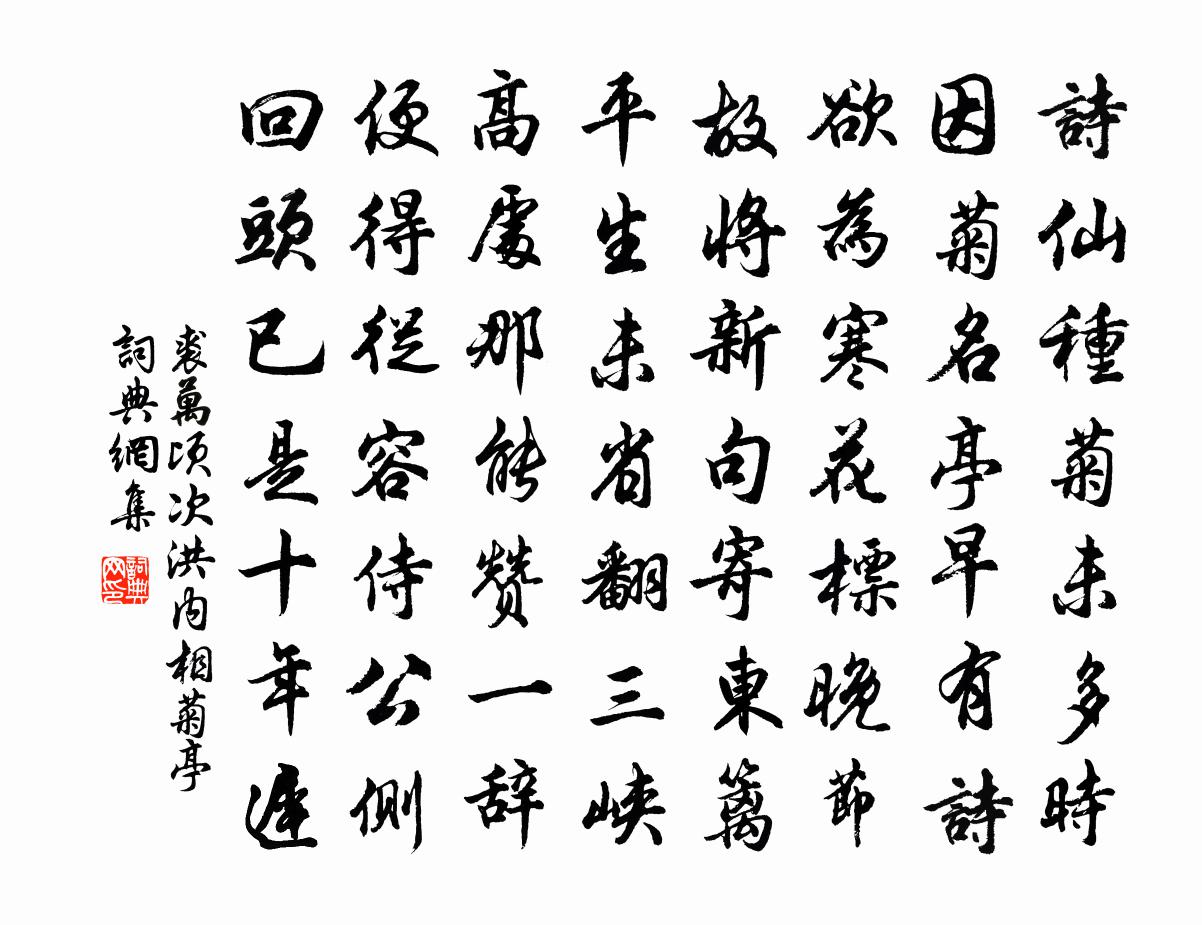 詩仙種菊未多時
因菊名亭早有詩
欲為寒花標晚節
故將新句寄東籬
平生未省翻三峽
高處那能贊一辞
便得從容侍公側
回頭已是十年遲
裘萬頃次洪内相菊亭
詞典網集
詞典网印